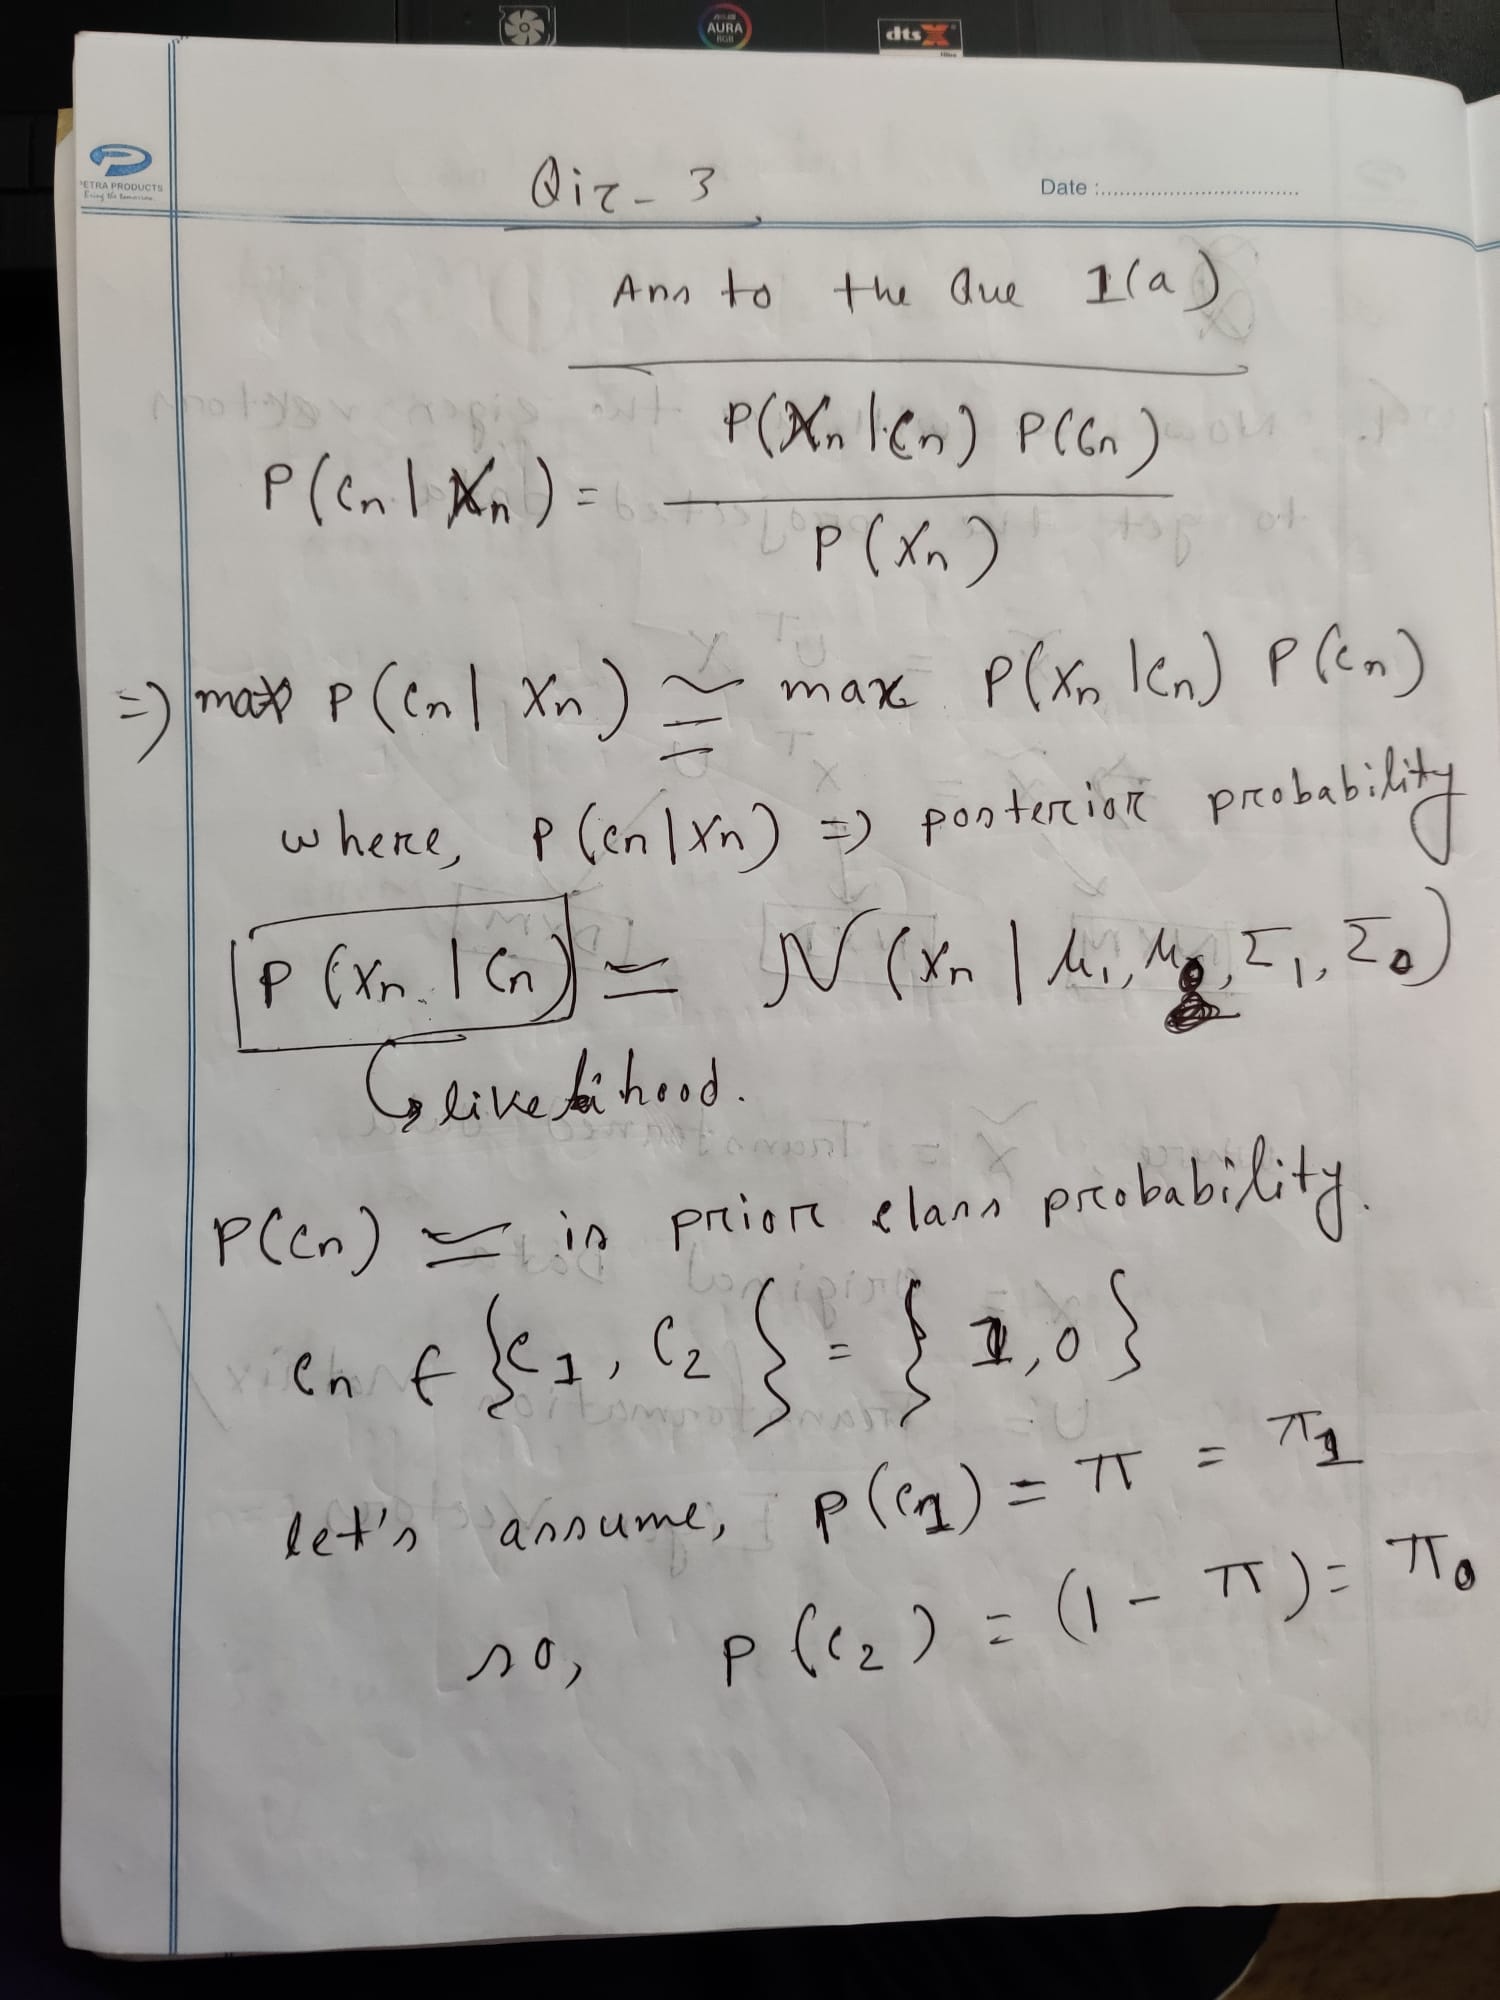 ASUS
AURA
RGB
dts X
Ultra
PETRA PRODUCTS
Date :
Qiz - 3
Ans to the Que 1(a)
P(Cn | Xn) = P(Xn | Cn) P(Cn) / P(Xn)
=> max P(Cn | Xn) ≃ max P(Xn | Cn) P(Cn)
where, P(Cn | Xn) => posterior probability
P(Xn | Cn) ≃ N(Xn | μ1, μ0, Σ1, Σ0)
↳ likelihood.
P(Cn) ≃ is prior class probability.
Cn ∈ {C1, C2} = {1, 0}
let's assume, P(C1) = π = π1
so, P(C2) = (1 - π) = π0